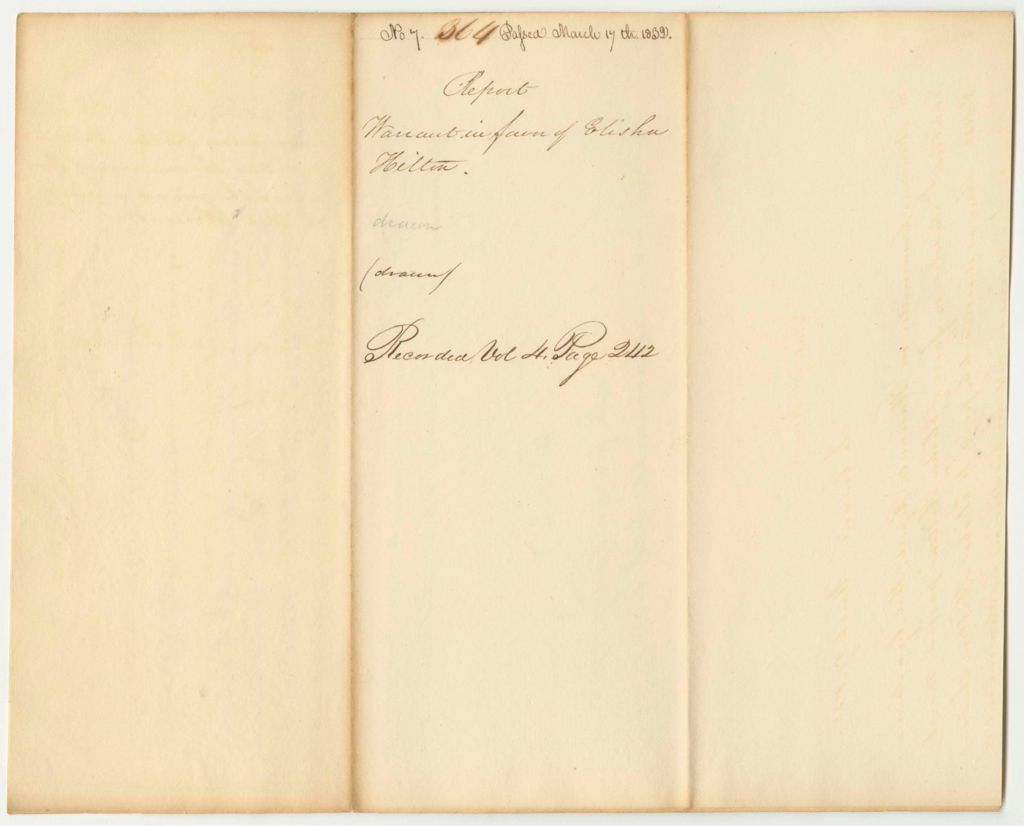 No 7. 364 Passed March 17th. 1839.
Report
Warrant in favor of Elisha
Hilton.
drawn
(drawn)
Recorded Vol 4. Page 242